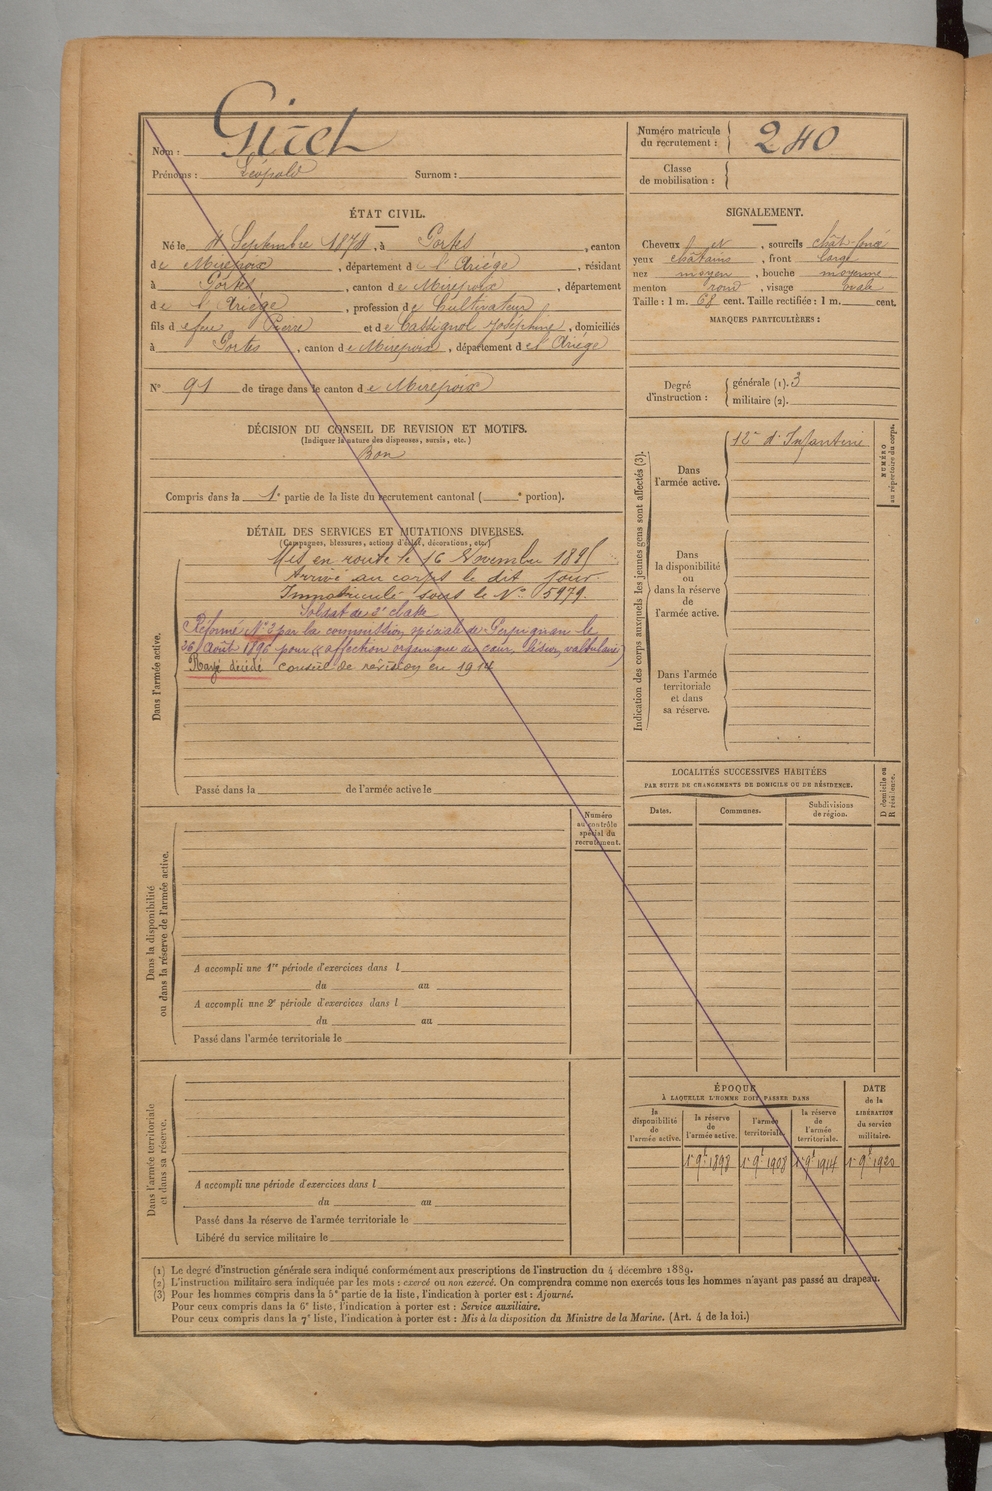 Nom : Giret
Prénoms : Léopold Surnom :
Numéro matricule du recrutement : 240
Classe de mobilisation :
ÉTAT CIVIL.
Né le 4 Septembre 1874, à Portes, canton
de Mirepoix, département de l'Ariége, résidant
à Portes, canton de Mirepoix, département
de l'Ariége, profession de Cultivateur
fils de feu Pierre et de Cassignol Joséphine, domiciliés
à Portes, canton de Mirepoix, département de l'Ariége
N° 91 de tirage dans le canton de Mirepoix
SIGNALEMENT.
Cheveux , sourcils chât-foncé
yeux châtains, front large
nez moyen, bouche moyenne
menton rond, visage ovale
Taille : 1 m. 68 cent. Taille rectifiée : 1 m. cent.
MARQUES PARTICULIÈRES :
Degré d'instruction : générale (1). 3
militaire (2).
DÉCISION DU CONSEIL DE REVISION ET MOTIFS.
(Indiquer la nature des dispenses, sursis, etc.)
Bon
Compris dans la 1e partie de la liste du recrutement cantonal ( e portion).
DÉTAIL DES SERVICES ET MUTATIONS DIVERSES.
(Campagnes, blessures, actions d'éclat, décorations, etc.)
Dans l'armée active.
Mis en route le 16 Novembre 1895
Arrivé au corps le dit jour.
Immatriculé sous le N° 5979.
Soldat de 2e classe
Réformé N° 2 par la commission spéciale de Perpignan le
26 Août 1896 pour "affection organique du cœur, lésion valvulaire"
Rayé décédé conseil de révision en 1914
Passé dans la de l'armée active le
Indication des corps auxquels les jeunes gens sont affectés (3).
NUMÉRO au répertoire du corps.
Dans l'armée active.
12me d'Infanterie
Dans la disponibilité ou dans la réserve de l'armée active.
Dans l'armée territoriale et dans sa réserve.
LOCALITÉS SUCCESSIVES HABITÉES
PAR SUITE DE CHANGEMENTS DE DOMICILE OU DE RÉSIDENCE.
Dates. Communes. Subdivisions de région.
D domicile ou R résidence.
Numéro au contrôle spécial du recrutement.
Dans la disponibilité ou dans la réserve de l'armée active.
A accompli une 1re période d'exercices dans l
du au
A accompli une 2e période d'exercices dans l
du au
Passé dans l'armée territoriale le
Dans l'armée territoriale et dans sa réserve.
A accompli une période d'exercices dans l
du au
Passé dans la réserve de l'armée territoriale le
Libéré du service militaire le
ÉPOQUE
À LAQUELLE L'HOMME DOIT PASSER DANS
la disponibilité de l'armée active.
la réserve de l'armée active.
l'armée territoriale.
la réserve de l'armée territoriale.
DATE de la LIBÉRATION du service militaire.
1er 9bre 1898 1er 9bre 1908 1er 9bre 1914 1er 9bre 1920
(1) Le degré d'instruction générale sera indiqué conformément aux prescriptions de l'instruction du 4 décembre 1889.
(2) L'instruction militaire sera indiquée par les mots : exercé ou non exercé. On comprendra comme non exercés tous les hommes n'ayant pas passé au drapeau.
(3) Pour les hommes compris dans la 5e partie de la liste, l'indication à porter est : Ajourné.
Pour ceux compris dans la 6e liste, l'indication à porter est : Service auxiliaire.
Pour ceux compris dans la 7e liste, l'indication à porter est : Mis à la disposition du Ministre de la Marine. (Art. 4 de la loi.)